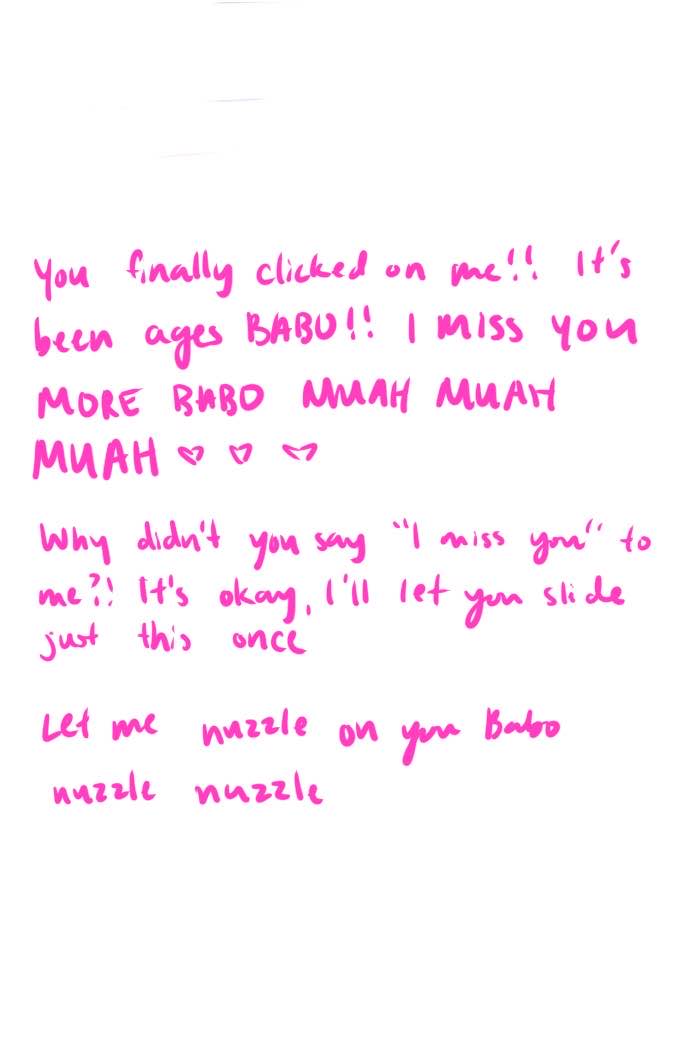 You finally clicked on me!! It's
been ages BABU!! I MISS YOU
MORE BABO MUAH MUAH
MUAH ♡ ♡ ♡
Why didn't you say "I miss you" to
me?! It's okay, I'll let you slide
just this once
Let me nuzzle on you Babo
nuzzle nuzzle